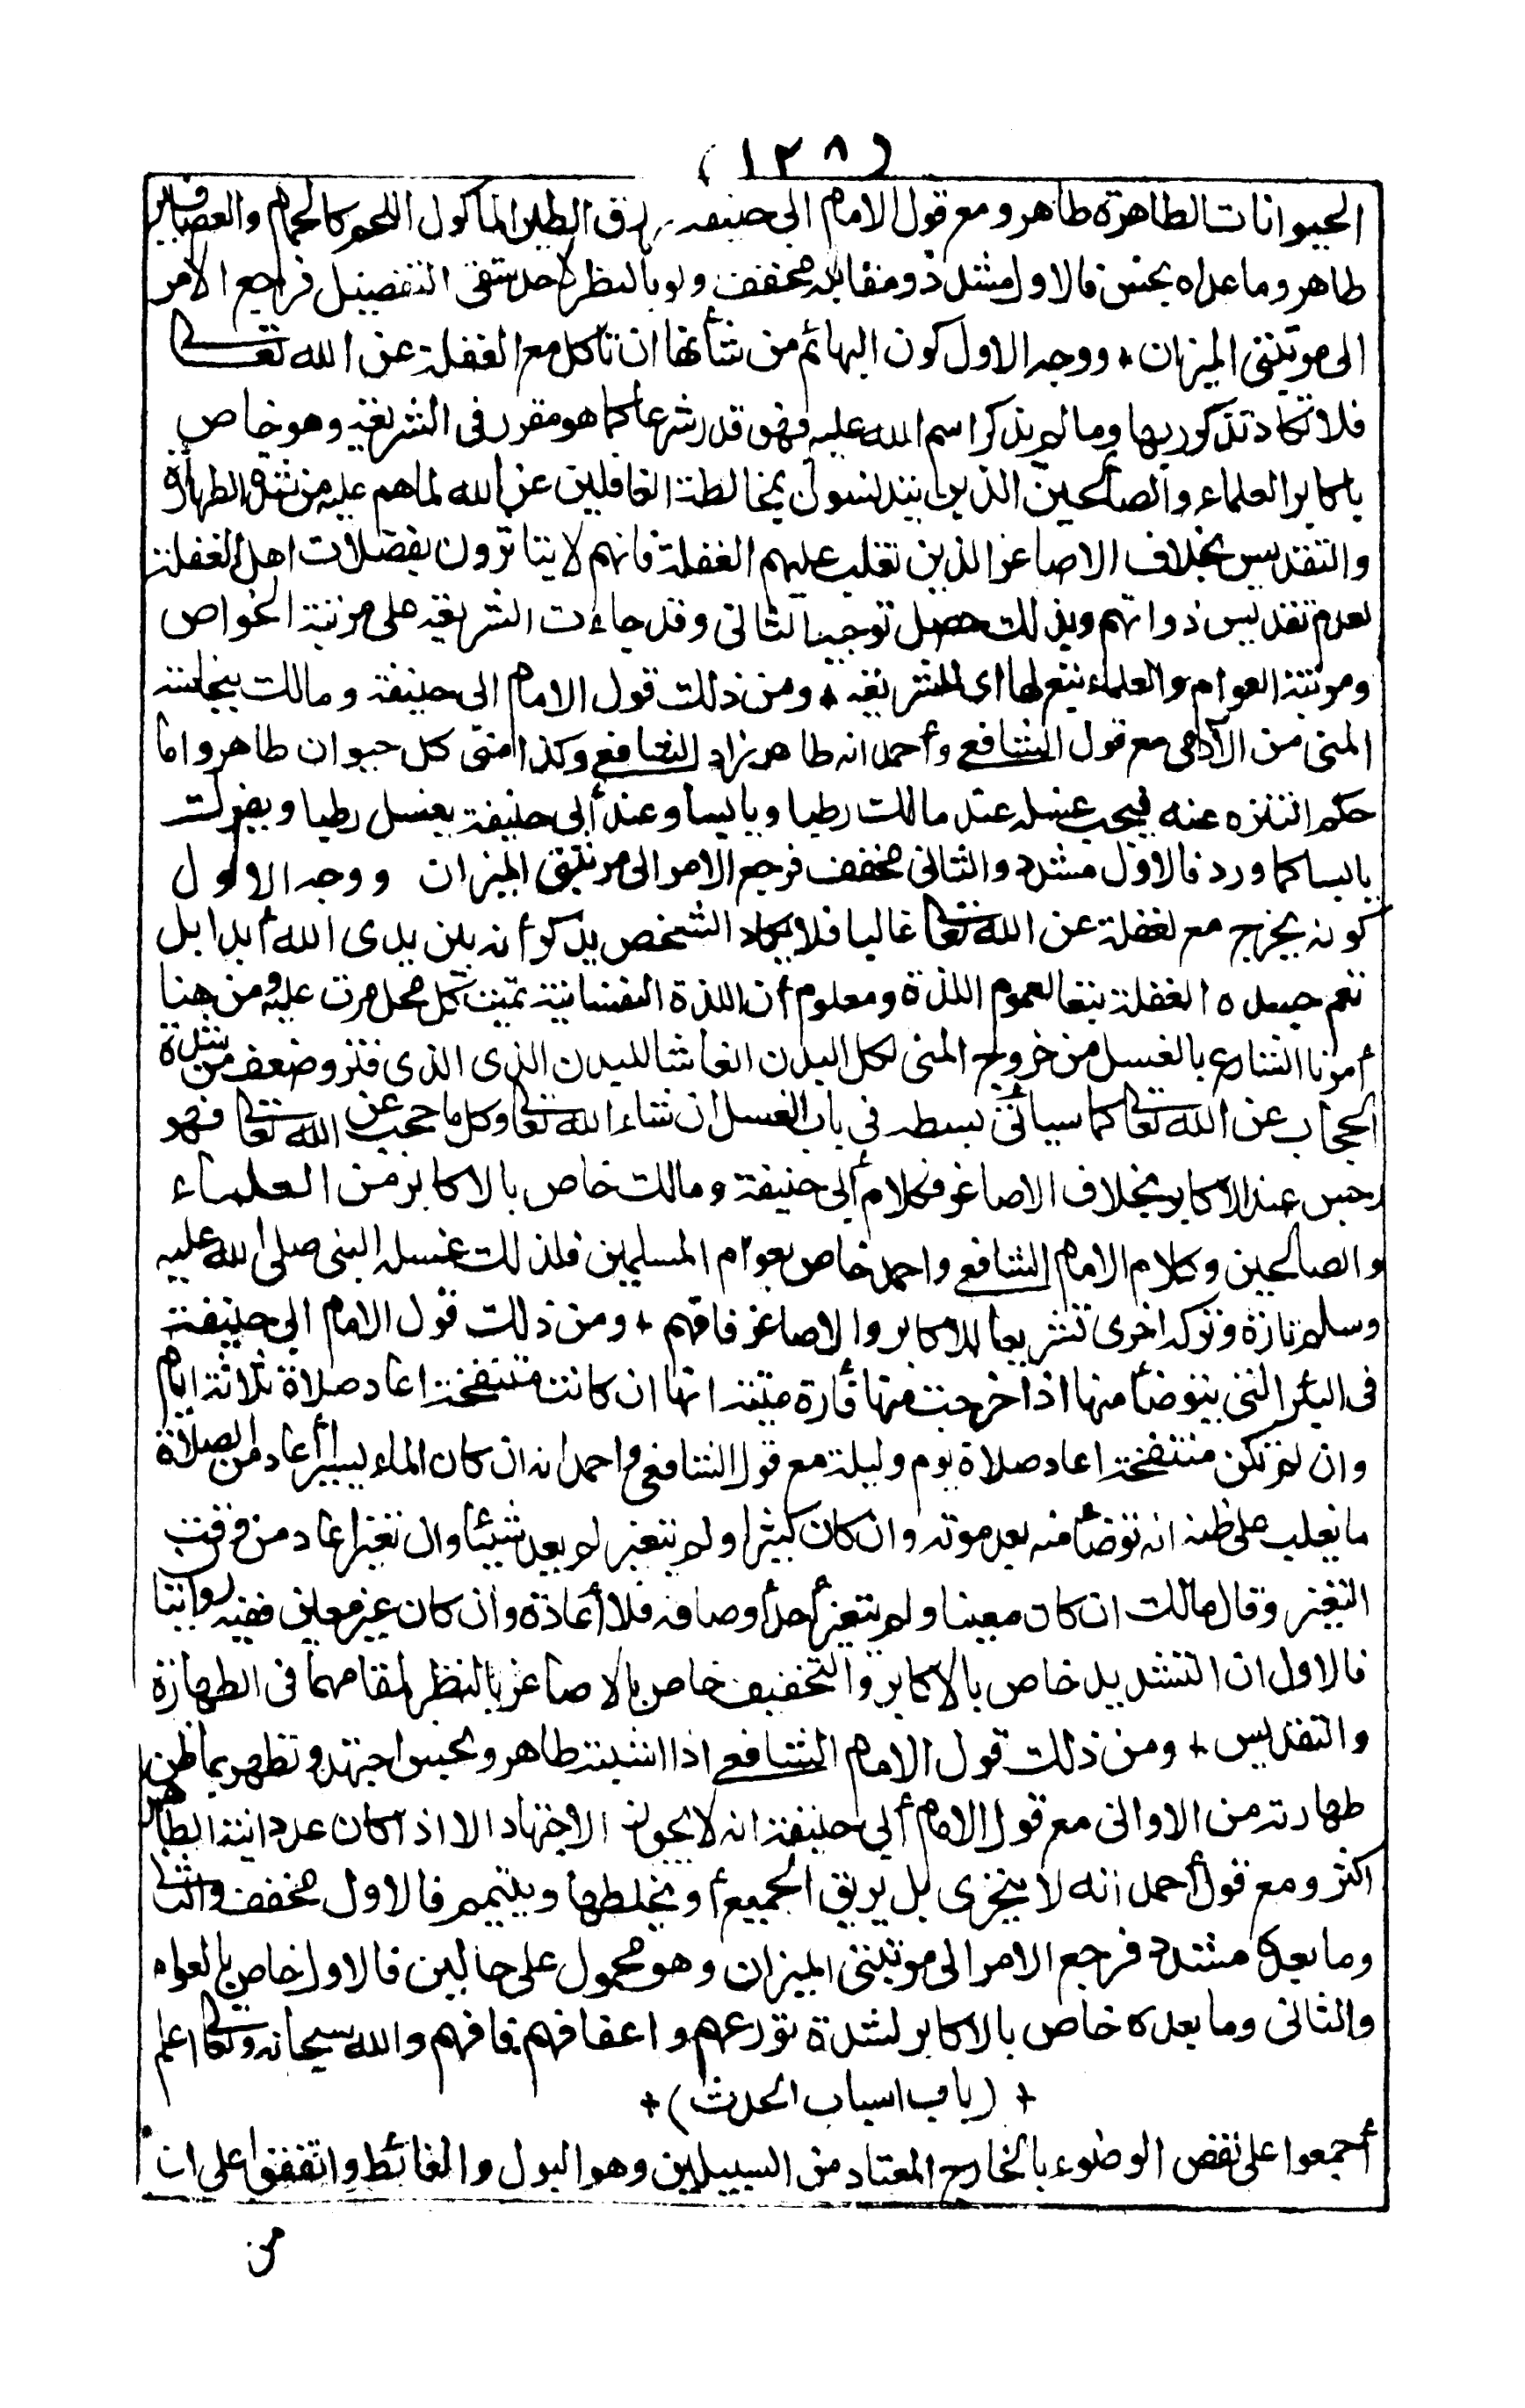 (١٢٨)
الحيوانات الطاهرة طاهر ومع قول الامام ابى حنيفة ذرق الطير المأكول اللحم كالحمام والعصافير
طاهر وما عداه نجس فالاول مشدد ومقابله مخفف ولو بالنظر لاحد شقى التفصيل فرجع الامر
الى مرتبتى الميزان + ووجه الاول كون البهائم من شأنها ان تأكل مع الغفلة عن الله تعالى
فلا تكاد تذكر ربها وما لم يذكر اسم الله عليه فهو قذر شرعا كما هو مقرر فى الشريعة وهو خاص
باكابر العلماء والصالحين الذين يتدنسون بمخالطة الغافلين عن الله لما هم عليه من شدة الطهارة
والتقديس بخلاف الاصاغر الذين تغلب عليهم الغفلة فانهم لا يتأثرون بفضلات اهل الغفلة
لعدم تقديس ذواتهم وبذلك حصل توجيه الثانى وقد جاءت الشريعة على مرتبة الخواص
ومرتبة العوام والعلماء تبع لها اى للشريعة + ومن ذلك قول الامام ابى حنيفة ومالك بنجاسة
المنى من الآدمى مع قول الشافعى وأحمد انه طاهر زاد الشافعى وكذا منى كل حيوان طاهر واما
حكم التنزه عنه فيجب غسله عند مالك رطبا ويابسا وعند أبى حنيفة يغسل رطبا ويفرك
يابسا كما ورد فالاول مشدد والثانى مخفف فرجع الامر الى مرتبتى الميزان ووجه الاول
كونه يخرج مع لغفلة عن الله تعالى غالبا فلا يكاد الشخص يذكر أنه بين يدى الله أبدا بل
تعم جسده الغفلة تبعا لعموم اللذة ومعلوم أن اللذة النفسانية تميت كل محل مرت عليه ومن هنا
أمرنا الشارع بالغسل من خروج المنى لكل البدن انعاشا للبدن الذى الذى فتر وضعف من شدة
الحجاب عن الله تعالى كما سيأتى بسطه فى باب الغسل ان شاء الله تعالى وكل ما حجب عن الله تعالى فهو
رجس عند الاكابر بخلاف الاصاغر فكلام أبى حنيفة ومالك خاص بالاكابر من العلماء
والصالحين وكلام الامام الشافعى واحمد خاص بعوام المسلمين فلذلك غسله النبى صلى الله عليه
وسلم تارة وتركه اخرى تشريعا للاكابر والاصاغر فافهم + ومن ذلك قول الامام ابى حنيفة
فى البئر التى يتوضأ منها اذا خرجت منها فأرة ميتة انها ان كانت منتفخة اعاد صلاة ثلاثة ايام
وان لم تكن منتفخة اعاد صلاة يوم وليلة مع قول الشافعى واحمد انه ان كان الماء يسيرا أعاد من الصلاة
ما يغلب على ظنه انه توضأ منه بعد موته وان كان كثيرا ولم يتغير لم يعد شيئا وان تغير اعاد من وقت
التغير وقال مالك ان كان معينا ولم يتغير أحد أوصافه فلا أعاذة وان كان غير معين ففيه روايتا
فالاول ان التشديد خاص بالاكابر والتخفيف خاص بالاصاغر بالنظر لمقامهما فى الطهارة
والتقديس + ومن ذلك قول الامام الشافعى اذا اشتبه طاهر ونجس اجتهد وتطهر بما ظن
طهارته من الاوانى مع قول الامام أبى حنيفة انه لا يجوز الاجتهاد الا اذا كان عدد آنية الطاهر
اكثر ومع قول أحمد انه لا يتحرى بل يريق الجميع أو يخلطها ويتيمم فالاول مخفف والثانى
وما بعده مشدد فرجع الامر الى مرتبتى الميزان وهو محمول على حالين فالاول خاص بالعوام
والثانى وما بعده خاص بالاكابر لشدة تورعهم و فافهم والله سبحانه وتعالى اعلم
+ (باب اسباب الحدث) +
أجمعوا على نقض الوضوء بالخارج المعتاد من السبيلين وهو البول والغائط واتفقوا على ان
من